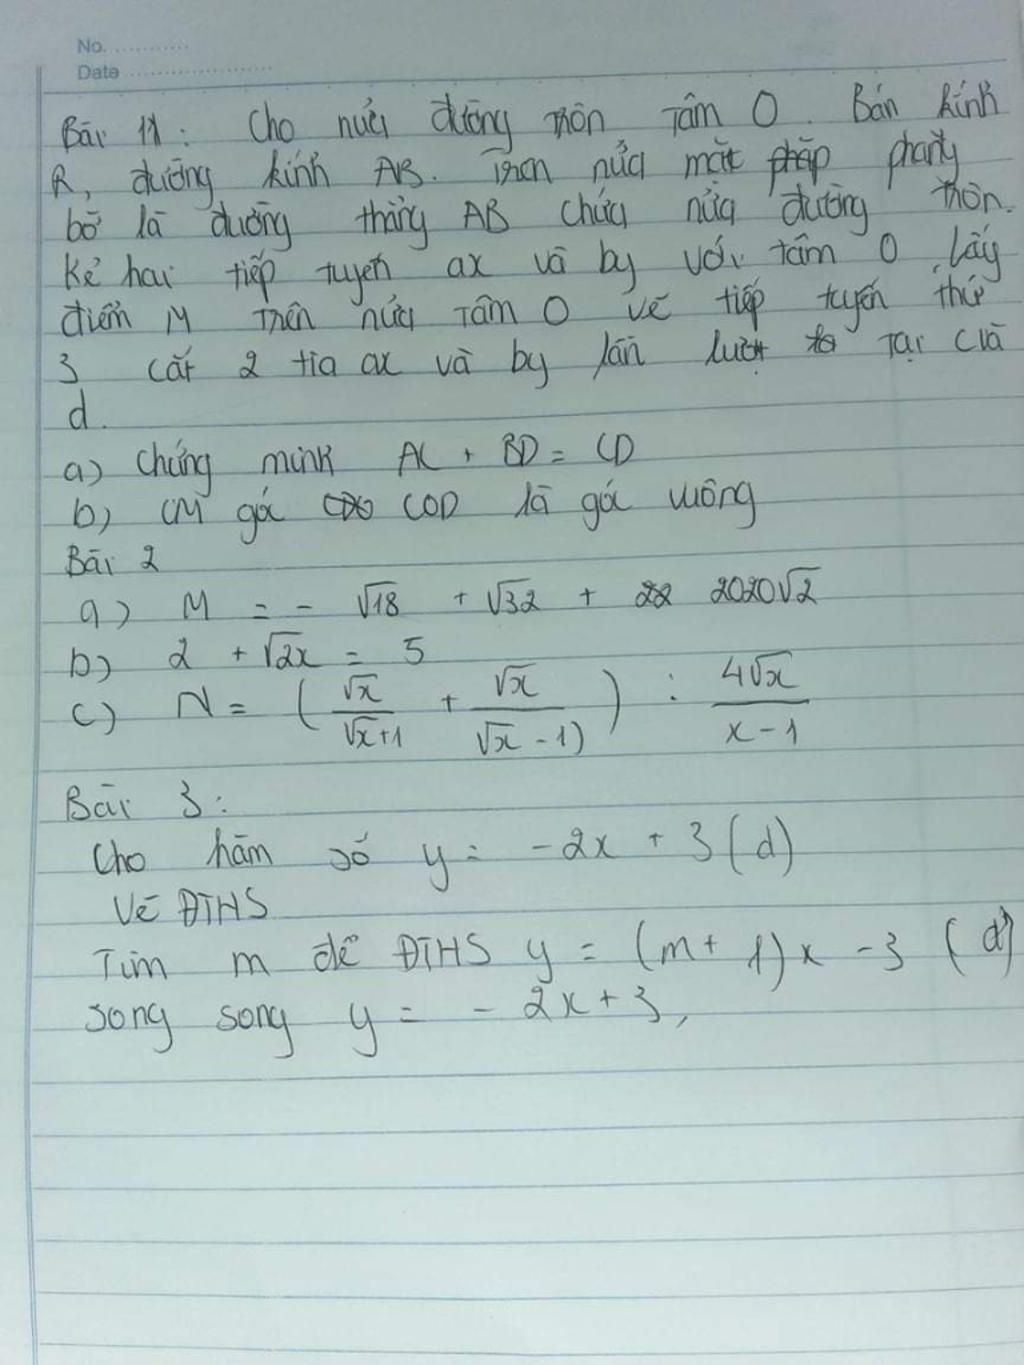 No. ............
Date .......................
Bài 1: Cho nửa đường tròn Tâm O. Bán kính
R, đường kính AB. Trên nửa mặt phẳng
bờ là đường thẳng AB chứa nửa đường tròn.
Kẻ hai tiếp tuyến ax và by với tâm O, lấy
điểm M trên nửa tâm O vẽ tiếp tuyến thứ
3 cắt 2 tia ax và by lần lượt tại c và
d.
a) Chứng minh AC + BD = CD
b) CM góc COD là góc vuông
Bài 2
a) M = - √18 + √32 + 2020√2
b) 2 + √2x = 5
c) N = ( √x/√x+1 + √x/√x - 1) ) : 4√x/x - 1
Bài 3:
Cho hàm số y = -2x + 3 (d)
Vẽ ĐTHS
Tìm m để ĐTHS y = (m + 1)x - 3 (d')
song song y = - 2x + 3,